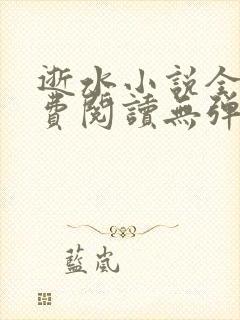 逝水小说全
費閱讀無彈
藍嵐